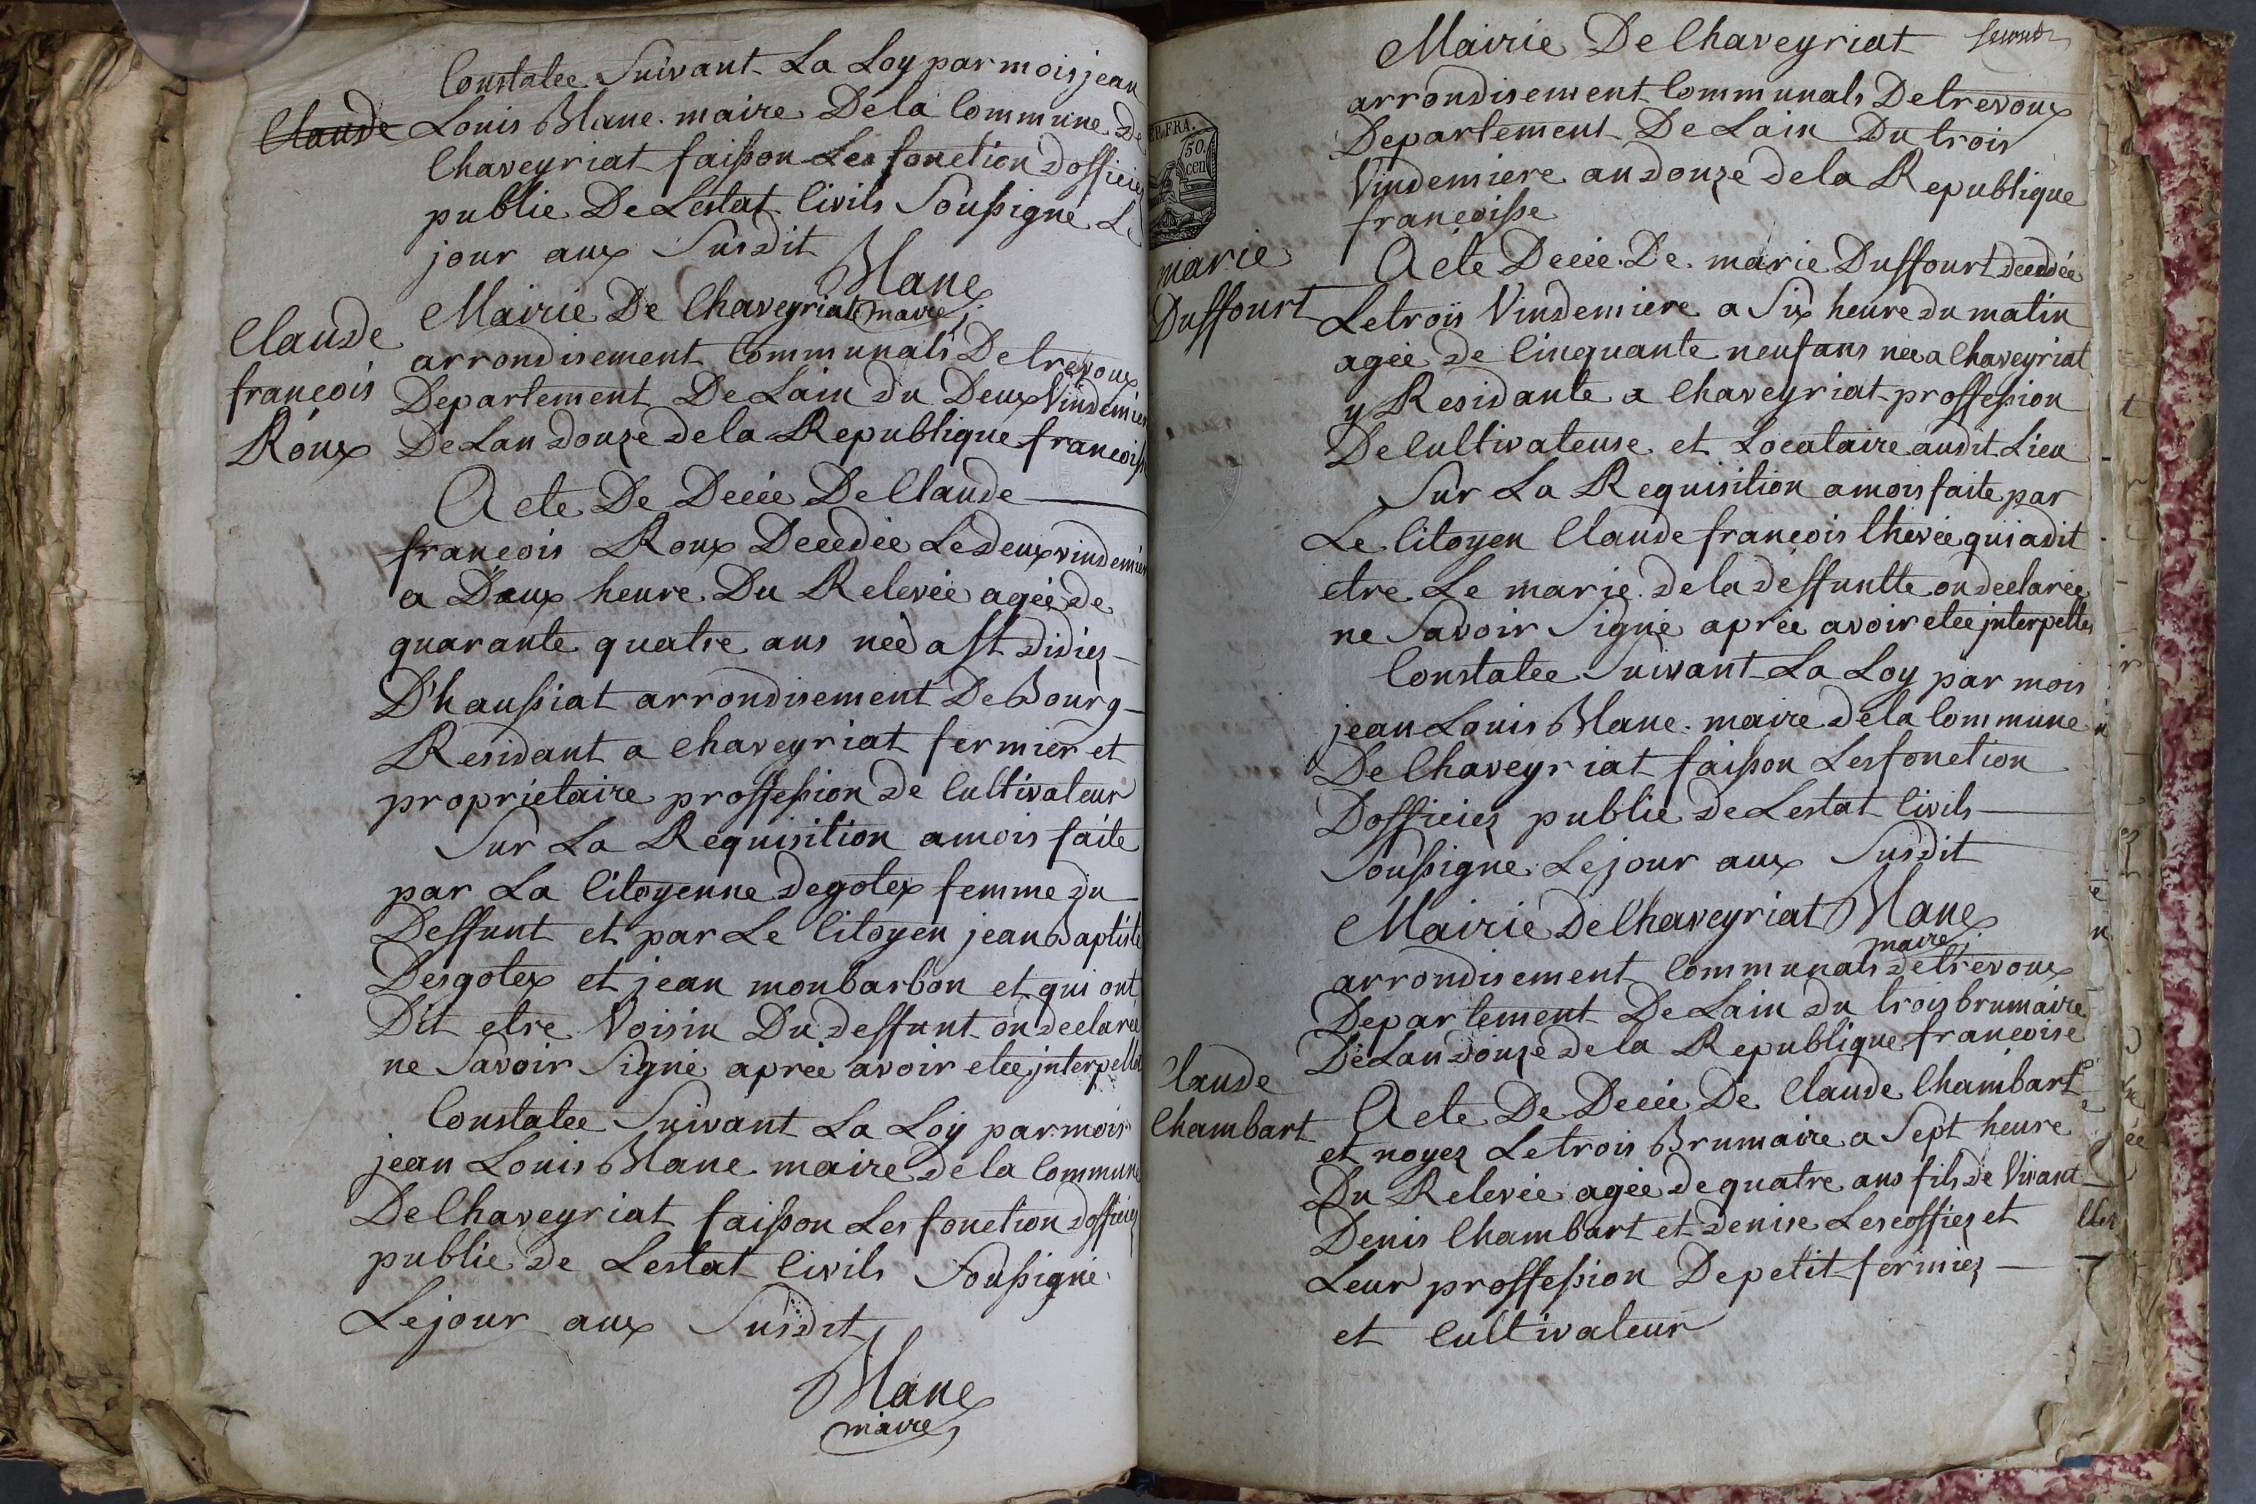 Constatee Suivant La Loy par mois jean
Claude
Louis Blanc maire De la Commune De
Chaveyriat faisson Les fonction dofficier
public De Lestat Civils Soussigné Le
jour aux Susdit
Blanc
maire
Claude
francois
Roux
Mairie De Chaveyriat
arrondisement Communals De trevoux
Departement De Lain du Deux Vindemier
De Lan douze de la Republique francoisse
Acte De Decée De Claude
francois Roux Decedée Le deux vindemier
a Deux heure Du Relevée agée de
quarante quatre ans neè a St didier
D'haussiat arrondisement De Bourg
Residant a chaveyriat fermier et
proprietaire proffession de Cultivateur
Sur La Requisition a mois faite
par La Citoyenne degotex femme du
Deffunt et par Le Citoyen jean Baptiste
Desgotex et jean monbarbon et qui ont
Dit etre Voisin Du deffunt on declarée
ne Savoir Signé aprée avoir eteé jnterpellé
Constatee Suivant La Loy par mois
jean Louis Blanc maire de la Commune
De Chaveyriat faisson Les fonction dofficier
public de Lestat Civils Soussigné
Le jour aux Susdit
Blanc
maire
Mairie De Chaveyriat
second
arrondisement Communals De trevoux
Departement De Lain Du trois
Vindemiere an douze de la Republique
francoisse
50.
cen
marie
Duffourt
Acte Decée De marie Duffourt decedée
Le trois Vindemiere a Six heure du matin
agée de Cinquante neuf ans nee a Chaveyriat
y Residante a Chaveyriat proffession
De Cultivateuse et Locataire audit Lieu
Sur La Requisition a mois faite par
Le Citoyen Claude francois Chevée qui a dit
etre Le marie de la deffuntte on declarée
ne Savoir Signé aprée avoir eteé jnterpellé
Constatee Suivant La Loy par mois
jean Louis Blanc maire de la Commune
De Chaveyriat faisson Les fonction
Dofficier public de Lestat Civils
Soussigné Le jour aux Susdit
Blanc
maire
Mairie De Chaveyriat
arrondisement Communals de trevoux
Departement De Lain du trois brumaire
De Lan douze de la Republique francoise
Claude
Chambart
Acte De Decée De Claude Chambart
et noyez Le trois Brumaire a Sept heure
Du Relevée agée de quatre ans fils de Vivant
Denis Chambart et denise Lescoffier et
Leur proffession De petit fermier
et Cultivateur